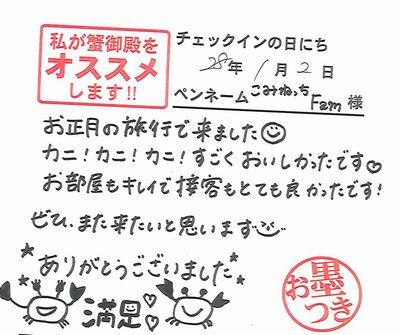 私が蟹御殿を
オススメ
します!!
チェックインの日にち
28年 1月 2日
ペンネーム こみねっち Fam 様
お正月の旅行で来ました
カニ!カニ!カニ!すごくおいしかったです
お部屋もキレイで接客もとても良かったです!
ぜひ、また来たいと思います
ありがとうございました
満足
お墨つき